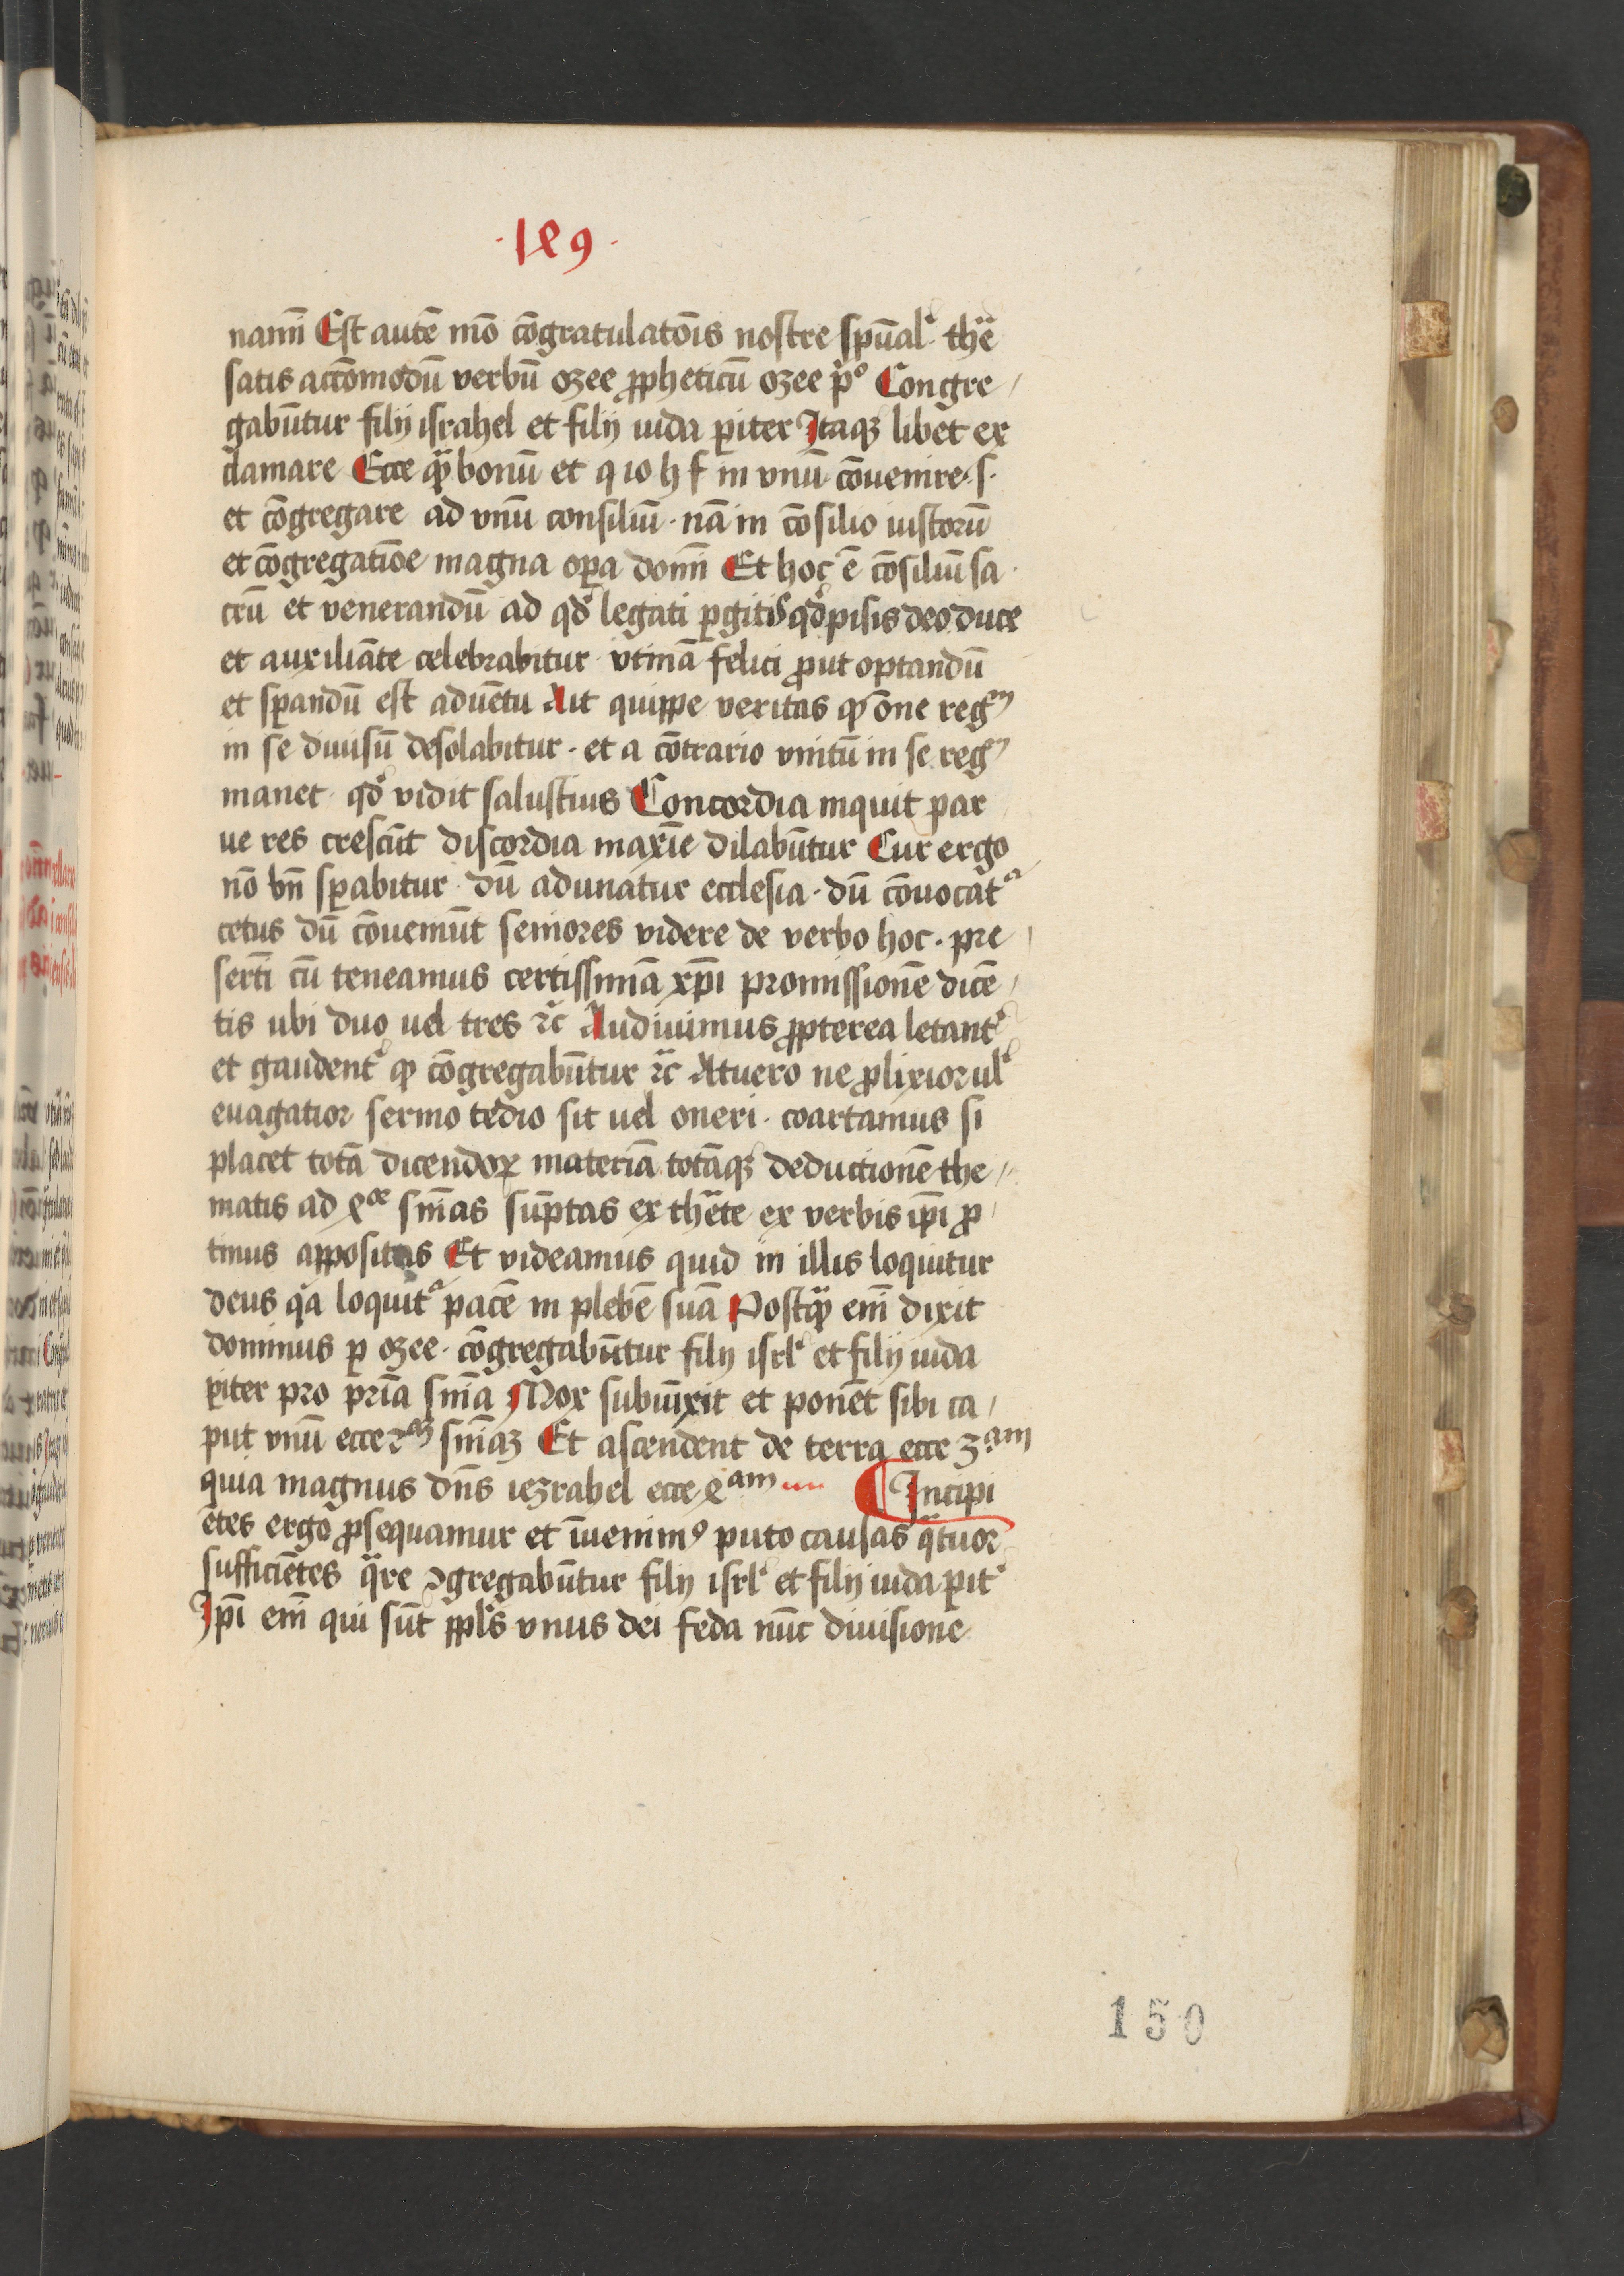 ·149·
nam̄ Est autē mō cōgratulatōis nostre spūal' the͞
satis accōmodū verbū ozee ꝓpheticū ozee p͛o Congre
gabūtur filij israhel et filij iuda ꝑiter Itaqꝫ libet ex
clamare Ecce qͣꝫ bonū et q io h f in vnū cōuenire s·
et cōgregare ad vnū consiliū · nā in cōsilio iustorū
et cōgregatiōe magna oꝑa domī Et hoc ē cōsiliū sa
crū et venerandū ad qd̾ legati ꝑgitis qd̾ pisis deo duce
et auxiliāte celebrabitur vtinā felici ꝓut optandū
et sꝑandū est aduētu Ait quippe veritas ꝙ om̄e regꝫ
in se diuisū desolabitur · et a cōtrario vnitū in se regꝫ
manet qd̾ vidit salustius Concordia inquit par
ue res crescūt discordia maxīe dilabūtur Cur ergo
nō bn̄ sꝑabitur · dū adunatur ecclesia · dū cōuocatᵃ
cetus dū cōueniūt seniores videre de verbo hoc · pre
sertī cū teneamus certissimā xp̄i promissionē dicē
tis ubi duo uel tres ⁊c̄ Audiuimus ꝓpterea letant᷑
et gaudent᷑ ꝙ cōgregabūtur ⁊c̄ At uero ne ꝓlixior ul᷑
euagatior sermo tedio sit uel oneri · coartamus si
placet totā dicendoꝝ materiā totāqꝫ deductionē the
matis ad 4or sn̄ias sūptas ex the͞te ex verbis ip̄i ꝓ
tinus appositas Et videamus quid in illis loquitur
deus qͣ loquitᵃ pacē in plebē suā Postqͣꝫ em̄ dixit
dominus ꝑ ozee · cōgregabūtur filij isrl᷑ et filij iuda
ꝑiter pro pria̅ sn̄ia Mox subiūxit et ponēt sibi ca
put vnū ecce 2aꝫ sn̄iaꝫ Et ascendent de terra ecce 3am
quia magnus dn̄s iezrahel ecce 4am ¶ Incipi
ētes ergo ꝓsequamur et īuenimꝰ puto causas qͣtuor
sufficiētes qͣre ꝯgregabūtur filij isrl᷑ et filij iuda ꝑit᷑
Ip̄i em̄ qui sūt ppl̄s vnus dei feda nūc diuisione
150